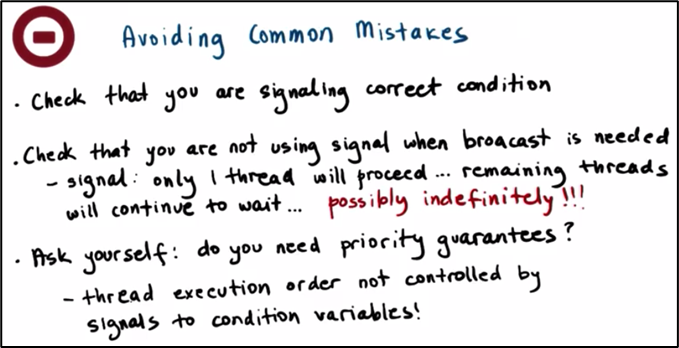 Avoiding Common Mistakes
. Check that you are signaling correct condition
. Check that you are not using signal when broacast is needed
- signal: only 1 thread will proceed... remaining threads
will continue to wait... possibly indefinitely!!!
. Ask yourself: do you need priority guarantees?
- thread execution order not controlled by
signals to condition variables!